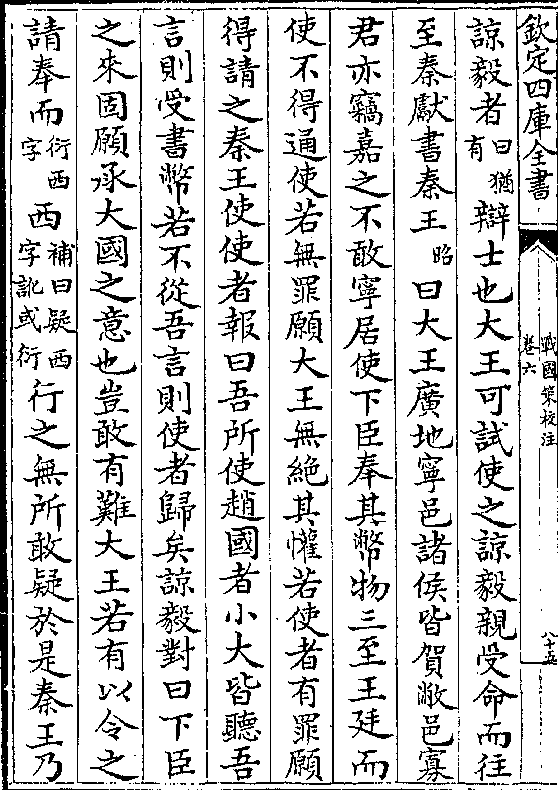 欽定四庫全書
戰國策校注
卷六
八十五
諒毅者曰猶有辯士也大王可試使之諒毅親受命而往
至秦獻書秦王昭曰大王廣地寧邑諸侯皆賀敝邑寡
君亦竊嘉之不敢寧居使下臣奉其幣物三至王廷而
使不得通使若無罪願大王無絶其懽若使者有罪願
得請之秦王使使者報曰吾所使趙國者小大皆聽吾
言則受書幣若不從吾言則使者歸矣諒毅對曰下臣
之來固願承大國之意也豈敢有難大王若有以令之
請奉而衍西字西補曰疑西字訛或衍行之無所敢疑於是秦王乃